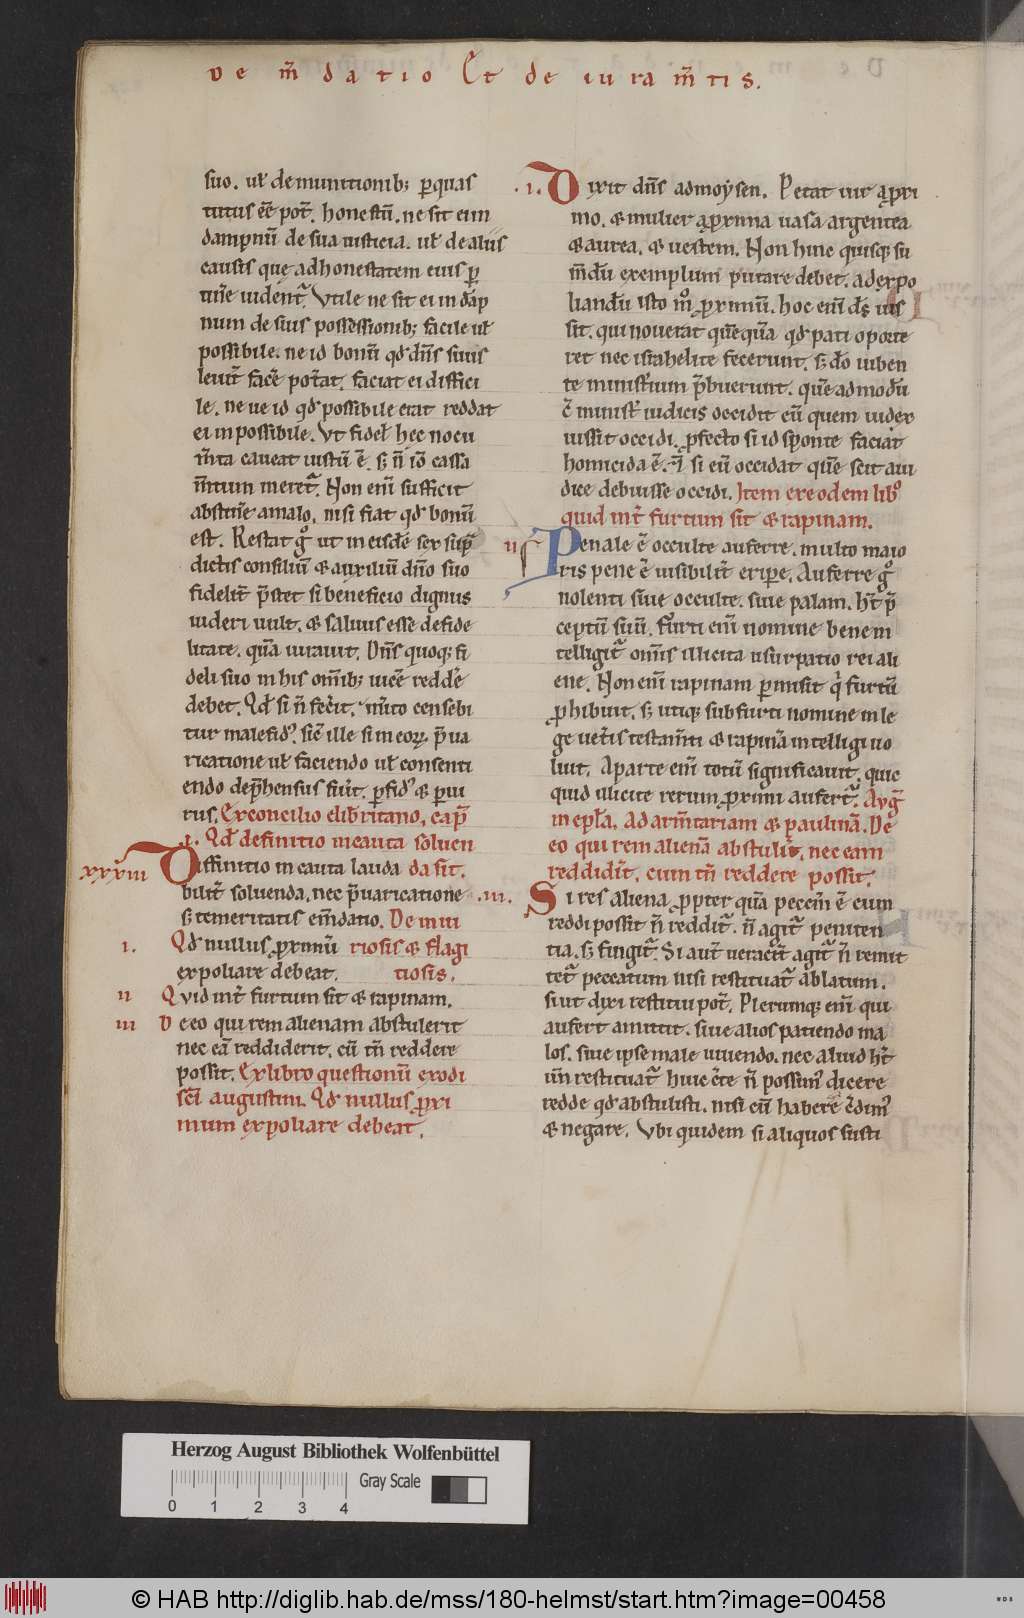 De m̄datio Et de iuram̄tis.
suo. uł de munitionib; ꝑ quas
tutus eē̄ pot̄. honestū. ne sit ei in
dampnū de sua iusticia. uł de aliis
causis quę ad honestatem eius ꝑ
tin̄e uident᷑. Vtile ne sit ei in dāp
num de suis possessionib; facile uł
possibile. ne id bonū qd̄ dn̄s suus
leuit̄ facē pot̄at. faciat ei diffici
le. ne ue id qd̄ possibile erat reddat
ei inpossibile. Vt fidel̄ hec nocu
m̄ta caueat iustū ē. s; n̄ iō cassa
m̄tium meret᷑. Non enī sufficit
abstin̄e a malo, nisi fiat qd̄ bonū
est. Restat gͦ ut in eisdē sex sup̄
dictis consiliū & auxiliū dn̄o suo
fidelit̄ p̄stet si beneficio dignus
uideri uult. & saluus esse de fide
litate. quā iurauit. Dn̄s quoq; fi
deli suo in his om̄ib; uicē reddē
debet. Qd̄ si n̄ fec̄it. m̄ito censebi
tur malefidꝰ. sic̄ ille si in eoꝝ p̄ua
ricatione uł faciendo uł consenti
endo dep̄hensus fu̅it. ꝑfidꝰ & ꝑiu
rus. Ex concilio elib̄ritano, cap̄
.i. Qd̄ definitio incauta soluen
xxxiii Diffinitio incauta lauda da sit.
bilit̄ soluenda. nec p̄uaricatione
s; temeritatis em̄datio. De iniu
i. Qd̄ nullus ꝓximū riosis & flagi
expoliare debeat. tiosis.
ii Quid int̄ furtum sit & rapinam.
iii De eo qui rem alienam abstulerit
nec eā reddiderit. cū tn̄ reddere
possit. Ex libro questionū exodi
sc̄i augustini. Qd̄ nullus ꝓxi
mum expoliare debeat.
.i. Dixit dn̄s ad moẏsen. Petat uir a ꝓxi
mo. & mulier a ꝓxima uasa argentea
& aurea. & uestem. Non hinc quisq; su
m̄dū exemplum putare debet. ad expo
liandū isto mͦ ꝓximū. hoc enī ds̄ ius
sit. qui nouerat quēquā qd̄ pati oporte
ret nec israhelite fecerunt. s; dō iuben
te ministium p̄buerunt. quēadmodū
c̄ minist̄ iudicis occidit eū quem iudex
iussit occidi. ꝓfecto si id sponte faciat
homicida ē. si eū occidat quē scit a iu
dice debuisse occidi. Item ex eodem libͦ
quid int̄ furtum sit & rapinam.
ii Penale ē occulte auferre. multo maio
ris pene ē uisibilit̄ eriꝑe. Auferre gͦ
nolenti siue occulte. siue palam. ht̄ p̄
ceptū suū. Furti enī nomine bene in
telligit᷑ om̄is illicita usurpatio rei ali
ene. Non enī rapinam ꝑmisit q̇ furtū
ꝓhibuit. s; utiq; sub furti nomine in le
ge uet̄is testam̄ti & rapinā intelligi uo
luit. A parte enī totū significauit. quic
quid illicite rerum ꝓximi aufert᷑. Avḡ
in epl̄a. ad arm̄tariam & paulinā. De
eo qui rem alienā abstulit. nec eam
reddidit̄. cum tn̄ reddere possit.
.iii. Si res aliena ꝓpter quā peccm̄ ē cum
reddi possit n̄ reddit᷑. n̄ agit᷑ peniten
tia. s; fingit᷑. Si aut̄ ueracit̄ agit᷑ n̄ remit
tet᷑ peccatum nisi restituat᷑ ablatum.
si ut dixi restitui pot̄. Plerumq; enī qui
aufert amittit. siue alios patiendo ma
los. siue ipse male uiuendo. nec aliud ht̄
un̄ restituat᷑ huic c̄te n̄ possimꝰ dicere
redde qd̄ abstulisti. nisi cū habere c̄dimꝰ
& negare. Vbi quidem si aliquos susti
Herzog August Bibliothek Wolfenbüttel
Gray Scale
0 1 2 3 4
© HAB http://diglib.hab.de/mss/180-helmst/start.htm?image=00458